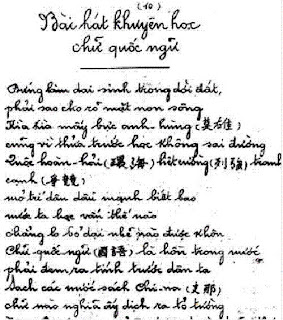 (10)
Bài hát khuyên học
chữ quốc ngữ
sinh trong dời đất,
phải sao cho rõ mặt non sông
Kìa kìa mấy bực anh-hùng
cũng vì thủa trước học không sai đường
Quốc hoàn-hải (環海) liệt cường (列強) tranh
cạnh (爭競)
mở trí dân dầu mạnh biết bao
nước ta học vấn thế nào
chẳng lo bỏ dại nhẽ nào được khôn
Chữ quốc ngữ (國語) là hồn trong nước
phải đem ra tính trước dân ta
Sách các nước sách Chi-na (支那)
chữ nào nghĩa ấy dịch ra tỏ tường